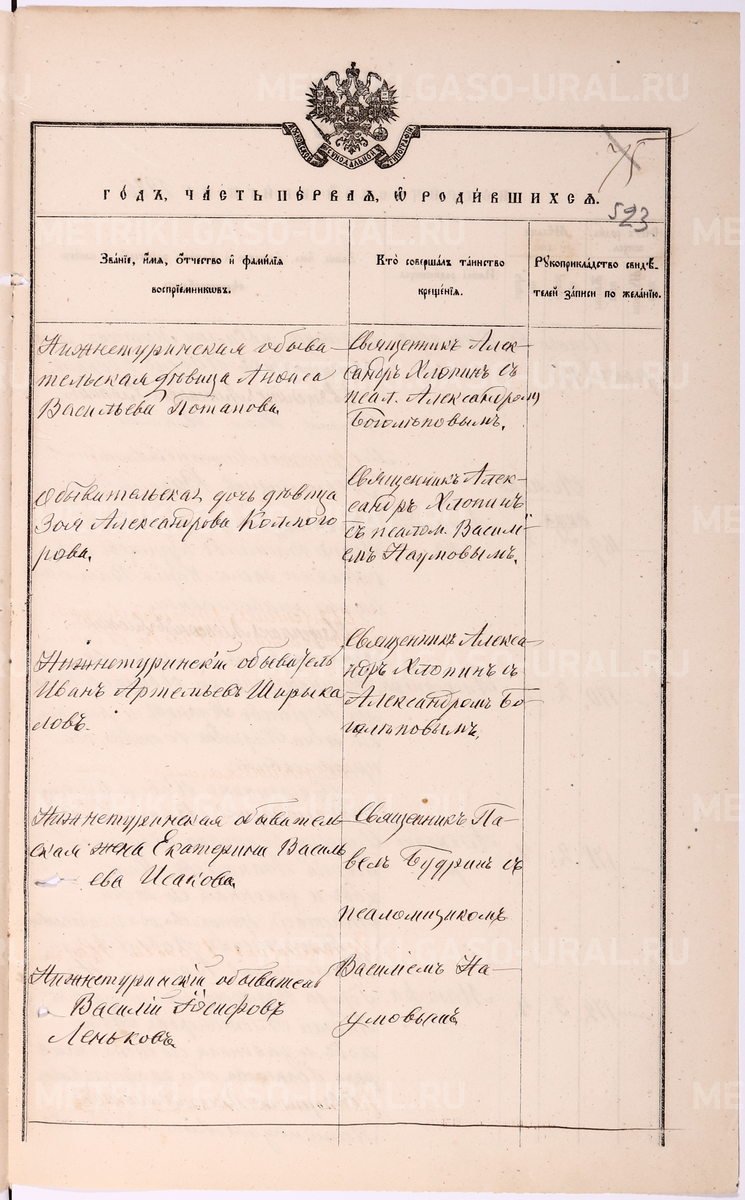 METRIKI.GASO-URAL.RU
МОСКОВСКОЙ СѴНОДАЛЬНОЙ ТИПОГРАФІИ
75
ГО́ДЪ, ЧА́СТЬ ПЕ́РВАЯ, Ѿ РОДИ́ВШИХСѦ.
523
Зва́ніе, и҆́мя, ѻ҆́тчество и҆ фами́лія
воспріе́мникѡвъ.
Кто̀ соверша́лъ та́инство
креще́нія.
Рꙋкоприкла́дство свидѣ́-
телей за́писи по жела́нію.
Нижнетуринская обыва-
тельская дѣвица Анѳиса
Васильева Потапова.
Священникъ Алек-
сандръ Хлопинъ съ
псал. Александромъ
Боголѣповымъ.
Обывательская дочь дѣвица
Зоя Александрова Колмого
рова.
Священникъ Алек-
сандръ Хлопинъ
съ псалом. Василі-
емъ Наумовымъ.
Нижнетуринскій обыватель
Иванъ Артемьевъ Ширыка
ловъ.
Священникъ Алекса-
ндръ Хлопинъ съ
Александромъ Бо-
голѣповымъ.
Нижнетуринская обыватель
ская жена Екатерина Василь
ева Исакова.
Священникъ Па-
велъ Будринъ съ
псаломщикомъ
Нижнетуринскій обыватель
Василій Іосифовъ
Леньковъ
Василіемъ На-
умовымъ